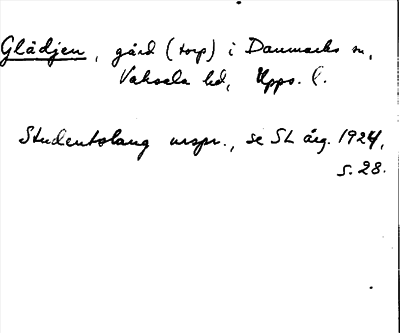 Glädjen, gård (torp) i Danmarks sn,
Vaksala hd, Upps. l.
Studentslang urspr., se SL årg. 1924,
s. 28.